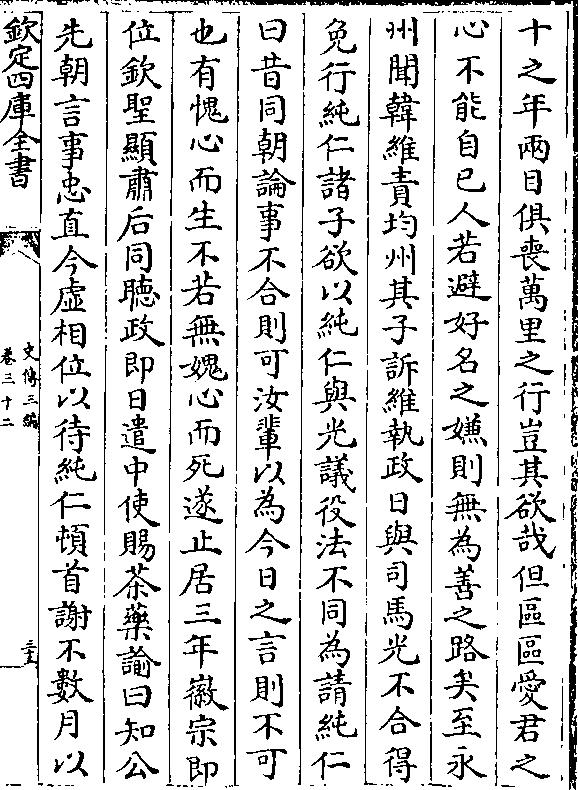 十之年兩目俱喪萬里之行豈其欲哉但區區愛君之
心不能自已人若避好名之嫌則無為善之路矣至永
州聞韓維責均州其子訴維執政日與司馬光不合得
免行純仁諸子欲以純仁與光議役法不同為請純仁
曰昔同朝論事不合則可汝輩以為今日之言則不可
也有愧心而生不若無媿心而死遂止居三年徽宗即
位欽聖顯肅后同聽政即日遣中使賜茶藥諭曰知公
先朝言事忠直今虛相位以待純仁頓首謝不數月以
欽定四庫全書
史傳三編
卷三十二
三五